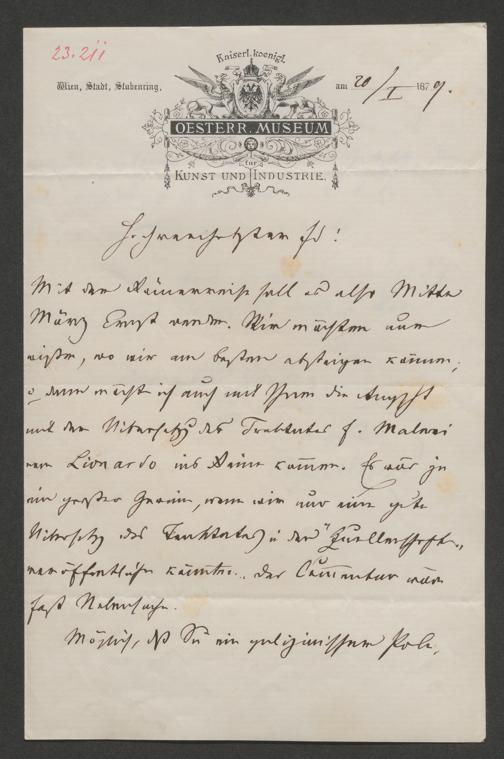 23.211
Kaiserl. koenigl.
Wien, Stadt, Stubenring.
am 20/I 1879.
OESTERR. MUSEUM
für
KUNST UND INDUSTRIE.
Hochverehrtester Fd!
Mit der Römerreise soll es also Mitte
März Ernst werden. Wir möchten nun
wissen, wo wir am besten absteigen können;
dann möchte ich auch mit Ihnen die
mit der Übersetzg des Traktates f. Malerei
von Lionardo ins Reine kommen. Es wär ja
ein großer Gewinn, wenn wir nur eine gute
Übersetzg des Traktates in den "Quellenschften"
veröffentlichen könnten. Der Commentar wäre
fast Nebensache.
Möglich, daß Sie ein